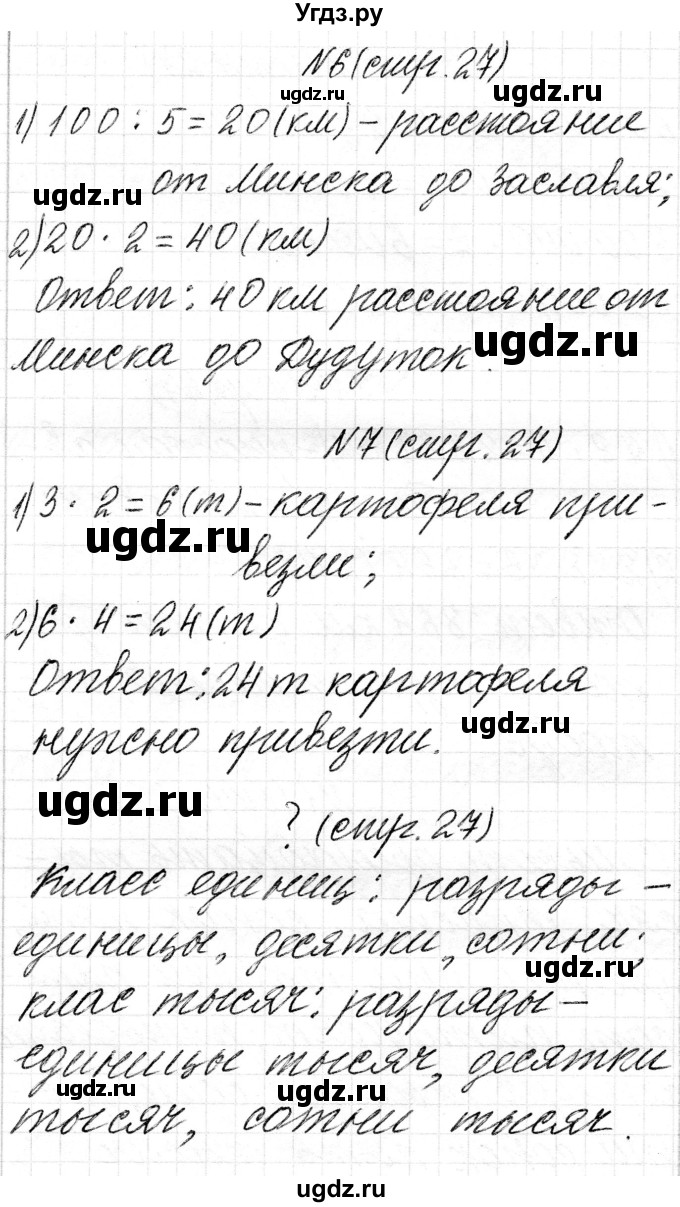 Угдз.ру
№6 (стр. 27)
ugdz.ru ugdz.ru
1) 100 : 5 = 20 (км) – расстояние
ugdz.ru от Минска до Заславля;
2) 20 · 2 = 40 (км)
Ответ: 40 км расстояние от
Минска до Дудуток.
ugdz.ru
№7 (стр. 27)
1) 3 · 2 = 6 (т) – картофеля при-
ugdz.ru
везли;
2) 6 · 4 = 24 (т)
Ответ: 24 т картофеля
нужно привезти.
ugdz.ru
ugdz.ru
? (стр. 27)
Класс единиц: разряды –
единицы, десятки, сотни;
ugdz.ru
клас тысяч: разряды –
единицы тысяч, десятки
ugdz.ru ugdz.ru
тысяч, сотни тысяч.
ugdz.ru